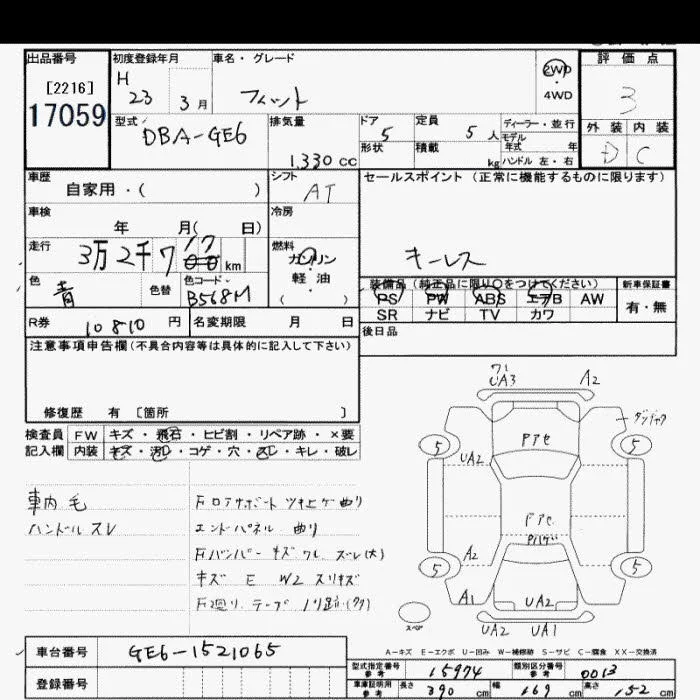 出品番号 初度登録年月 車名・グレード 2WD 評価点
[2216] H 23 3月 フィット 4WD 3
17059 型式 DBA-GE6 排気量 1.330 cc ドア 5 定員 5人 ディーラー・並行 外装 内装
形状 積載 kg モデル年式 年 D C
ハンドル 左・右
車歴 自家用・( ) シフト AT セールスポイント(正常に機能するものに限ります)
車検 年 月( 日) 冷房
走行 3万2千7 km 燃料 ガソリン キーレス
軽・油
色 青 色替 色コード B568M ( ) 装備品(純正品に限り○をつけてください) 新車保証書
PS PW ABS エアB AW 有・無
R券 10810 円 名変期限 月 日 SR ナビ TV カワ
注意事項申告欄(不具合内容等は具体的に記入して下さい) 後日品
修復歴 有 [箇所 ]
検査員 FW キズ・飛石・ヒビ割・リペア跡・×要
記入欄 内装 キズ・汚レ・コゲ・穴・スレ・キレ・破レ
ワレ
UA3 A2
5 UA2 Fアセ 5
車内毛 Fロアサポート ツキ上ゲ曲り
ハンドルスレ エンドパネル 曲り
Fバンパー キズ ワレ ズレ(大)
キズ E W2 スリキズ
F廻り テープ
Fアセ
A2 5 5
A1 UA2
スペア UA2 UA1
A-キズ E-エクボ U-凹み W-補修跡 S-サビ C-腐食 XX-交換済
車台番号 GE6-1521065
型式指定番号 参考 15974 類別区分番号 参考 0013
登録番号 車庫証明用 参考 長さ 390 cm 幅 169 cm 高さ 152 cm